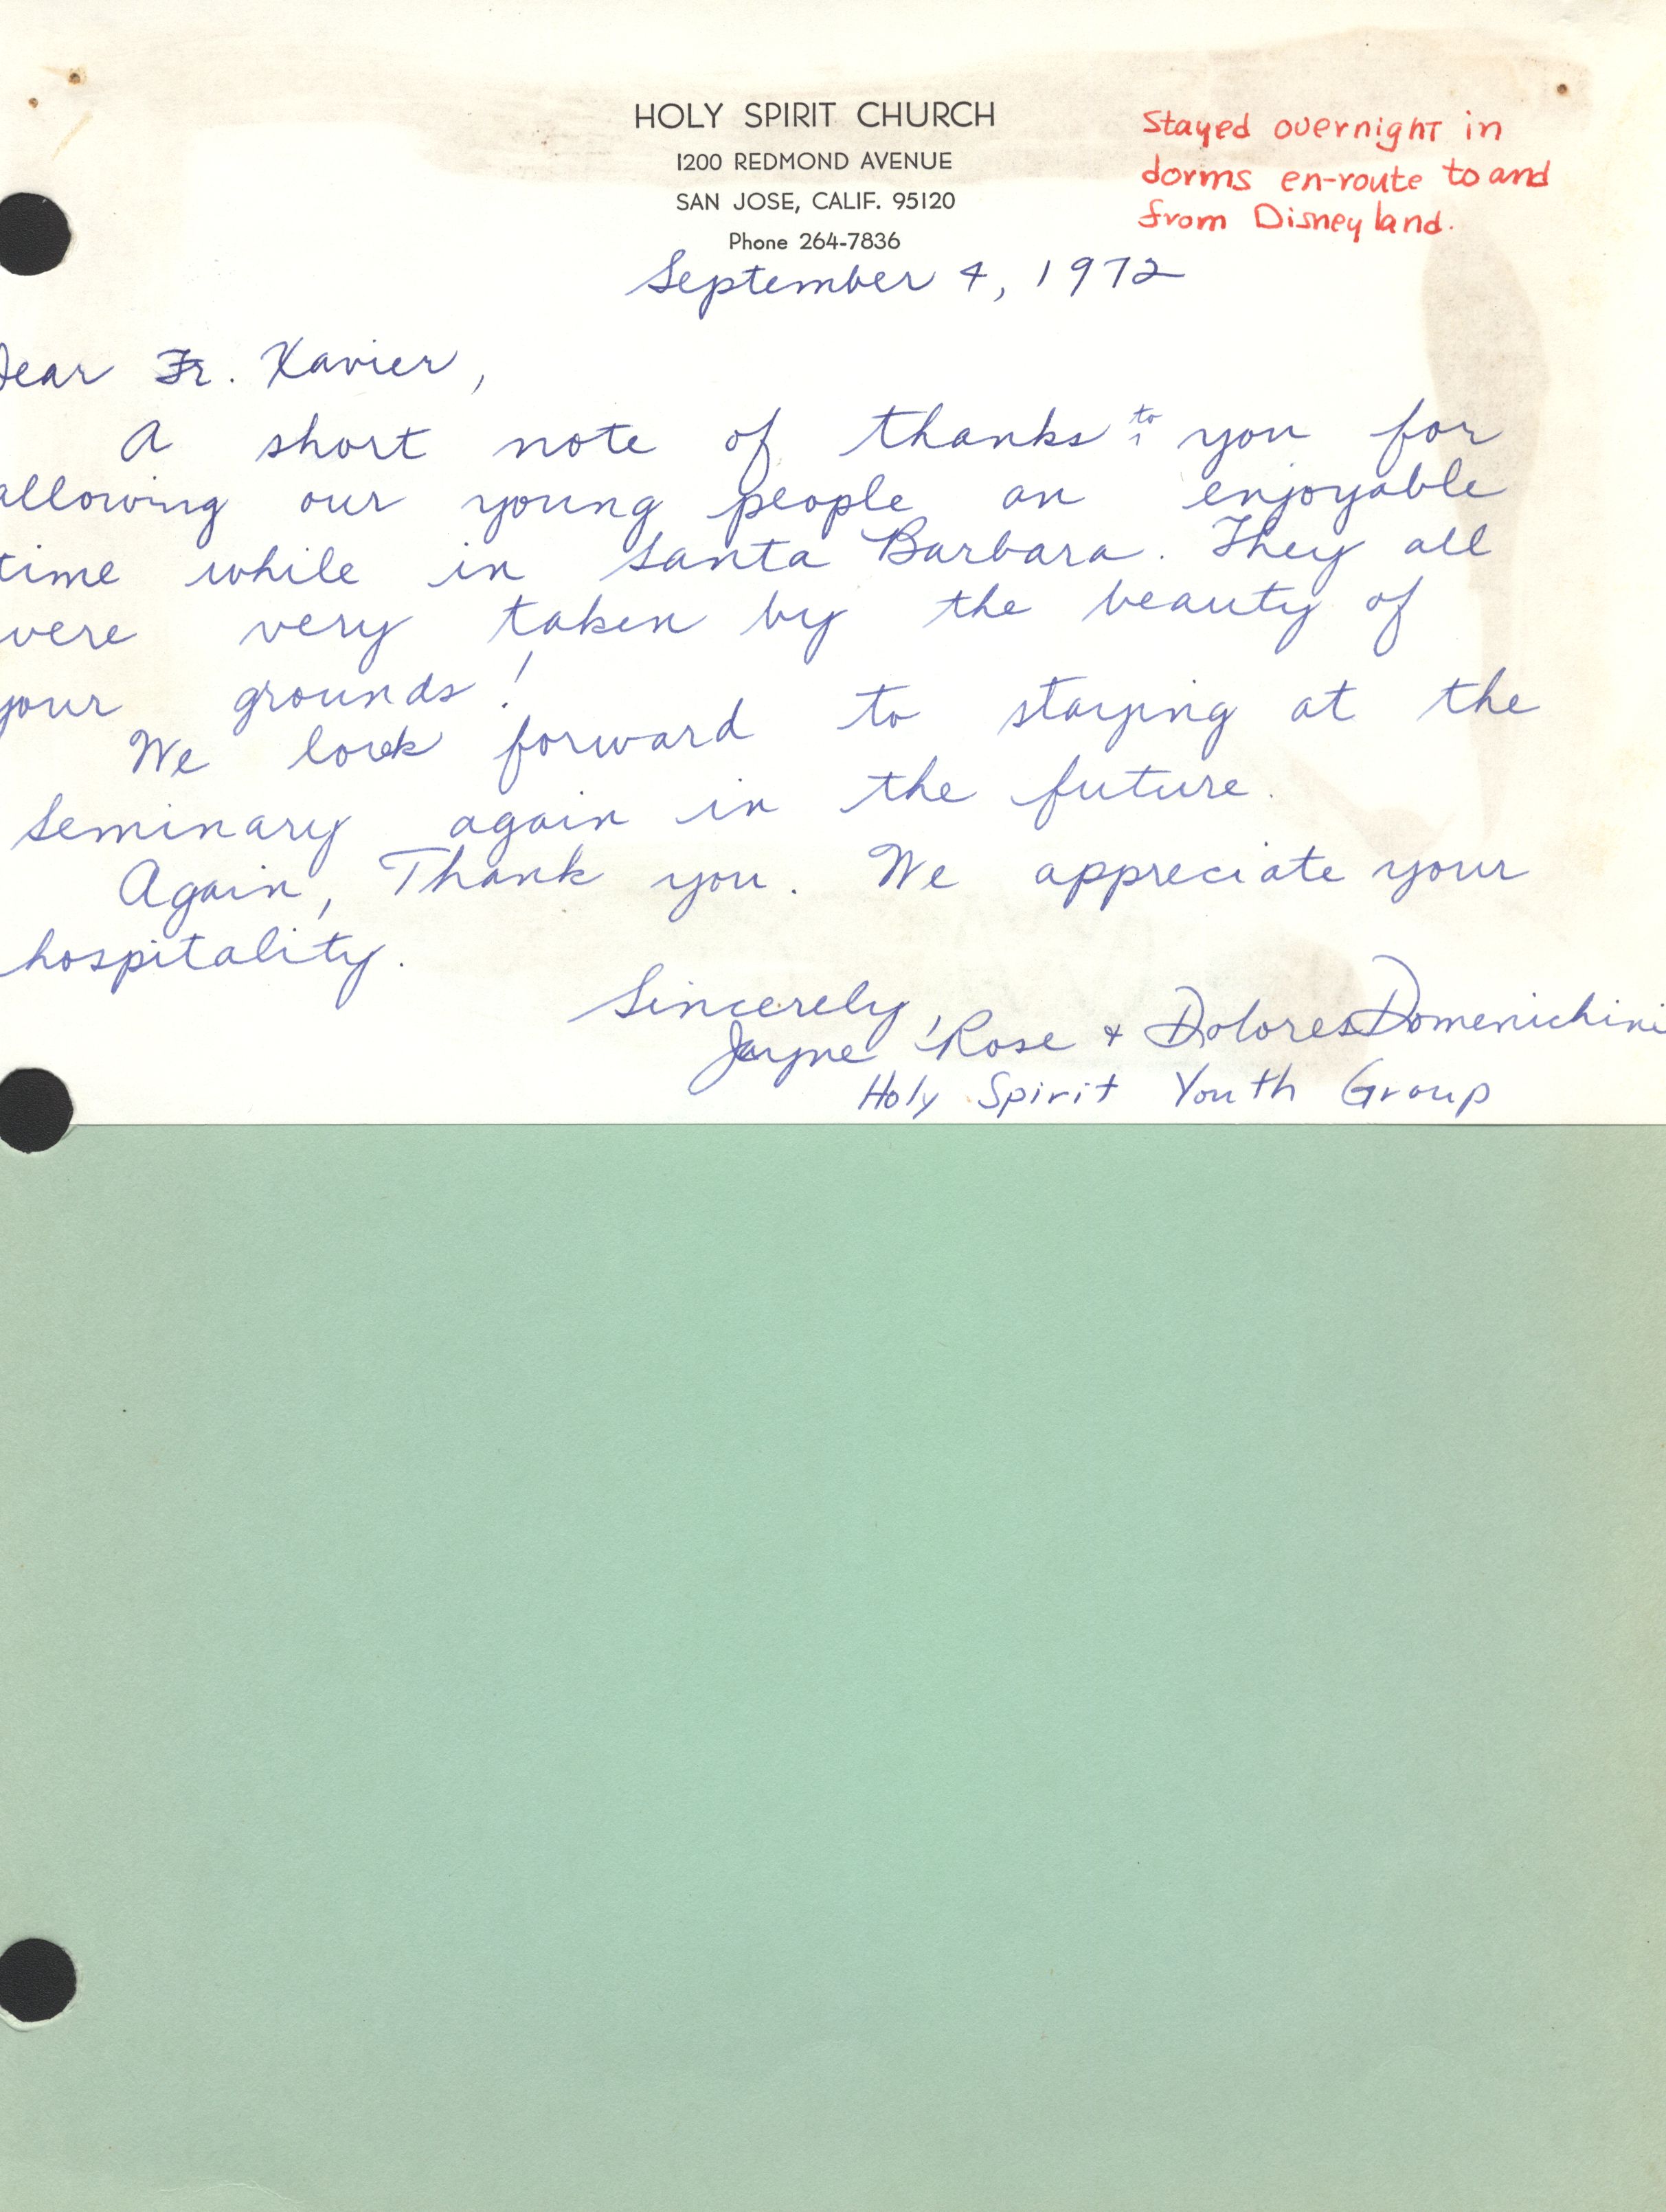 HOLY SPIRIT CHURCH
1200 REDMOND AVENUE
SAN JOSE, CALIF. 95120
Phone 264-7836
Stayed overnight in
dorms en-route to and
from Disneyland.
September 4, 1972
Dear Fr. Xavier,
A short note of thanks to you for
allowing our young people an enjoyable
time while in Santa Barbara. They all
were very taken by the beauty of
your grounds!
We look forward to staying at the
Seminary again in the future.
Again, Thank you. We appreciate your
hospitality.
Sincerely,
Jayne Rose & Dolores Domenichini
Holy Spirit Youth Group